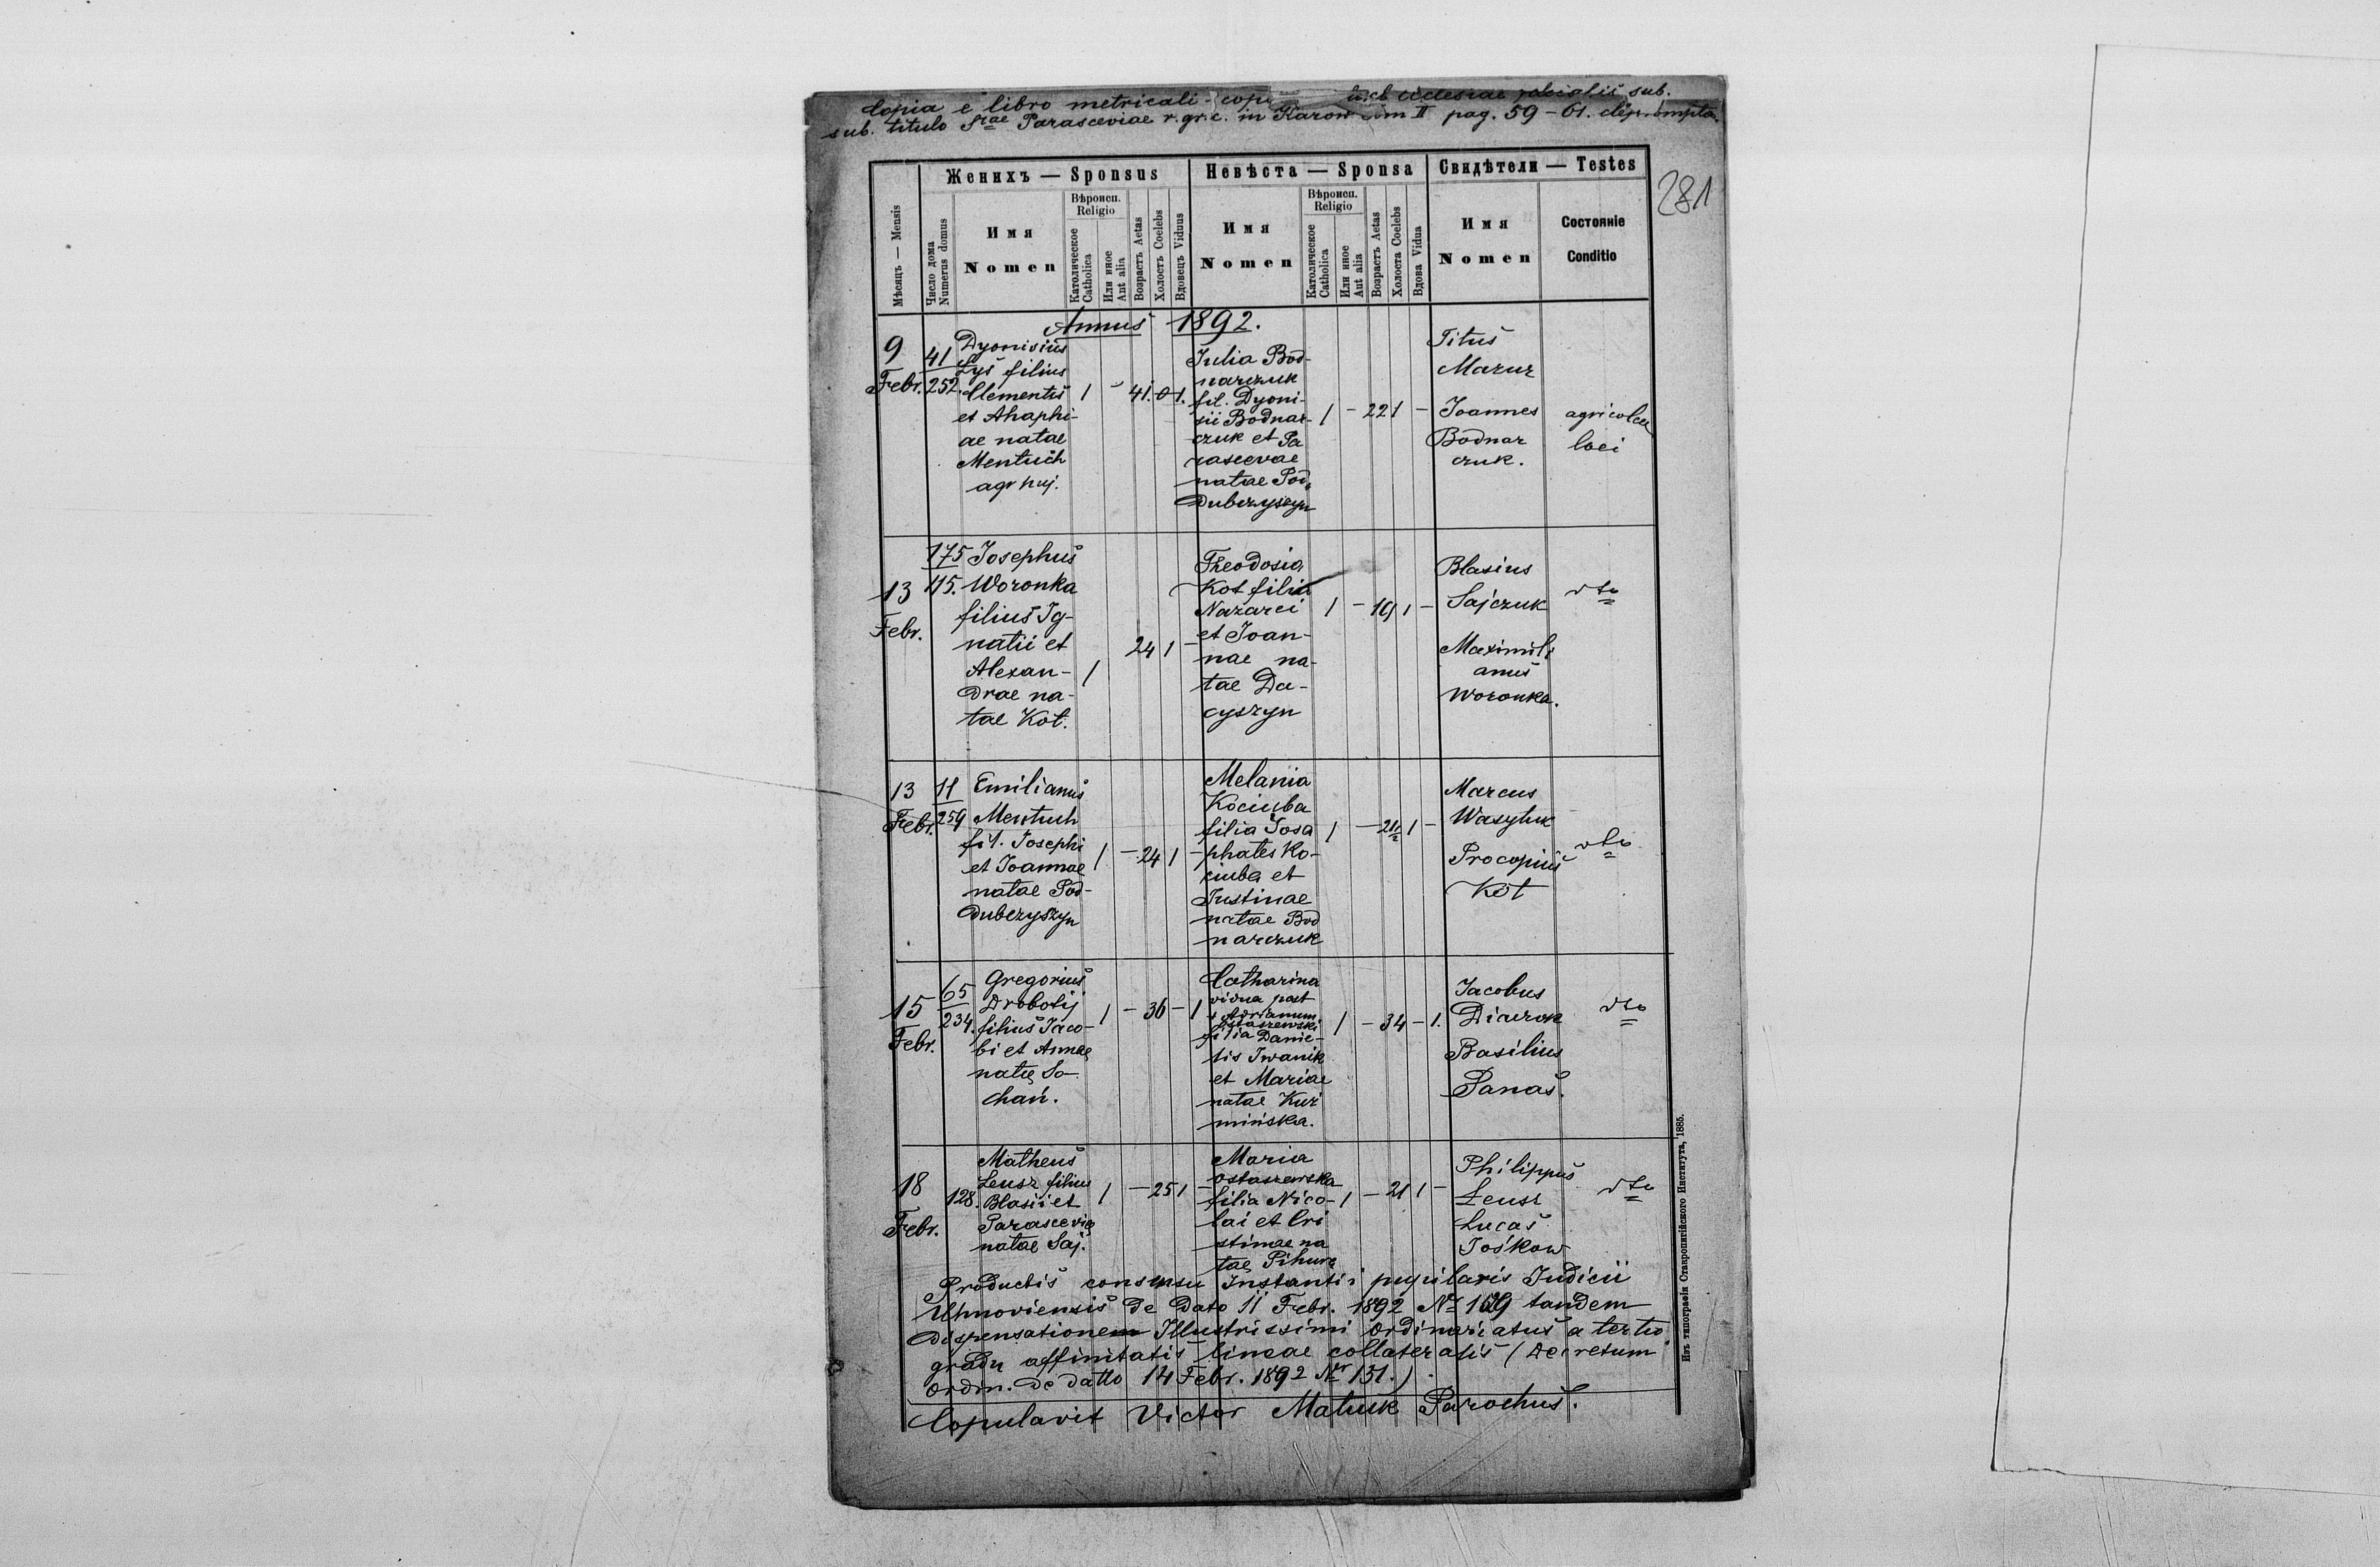 Copia e libro metricali ecclesiae sub.
sub. titulo Stae Parasceviae r. gr. c. in Karow Tom II pag. 59 – 61. deprompta.
281
Женихъ — Sponsus
Невѣста — Sponsa
Свидѣтели — Testes
Мѣсяцъ — Mensis
Число дома
Numerus domus
Имя
Nomen
Вѣроисп.
Religio
Католическое
Catholica
Или иное
Aut alia
Возрастъ Aetas
Холостъ Coelebs
Вдовецъ Viduus
Имя
Nomen
Вѣроисп.
Religio
Католическое
Catholica
Или иное
Aut alia
Возрастъ Aetas
Холоста Coelebs
Вдова Vidua
Имя
Nomen
Состояніе
Conditio
Annus 1892.
9
Febr.
41
252.
Dyonisius
Łyś filius
Clementis
et Ahaphi-
ae natae
Mentuch
agr huj.
1 - 41. 0 1.
Julia Bod-
narczuk
fil. Dyoni-
sii Bodnar-
czuk et Pa
rascevae
natae Pod-
dubczyszyn
1 - 22 1 -
Titus
Mazur
Joannes
Bodnar
czuk.
agricolae
loci
13
Febr.
175
115.
Josephus
Woronka
filius Ig-
natii et
Alexan-
drae na-
tae Kot.
1 24 1 -
Theodosia
Kot filia
Nazarei
et Joan-
nae na-
tae Da-
cyszyn
1 - 19 1 -
Blasius
Sajczuk
Maximili
anus
Woronka.
dto
13
Febr.
11
259
Emilianus
Mentuch
fil. Josephi
et Joannae
natae Pod-
dubczyszyn
1 - 24 1 -
Melania
Kociuba
filia Josa
phates Ko-
ciuba et
Justinae
natae Bod
narczuk
1 - 1 -
Marcus
Wasyluk
Procopius
Kot
dto
15
Febr.
65
234.
Gregorius
Drobotij
filius Jaco-
bi et Annae
natae So-
chań.
1 - 36 - 1
Catharina
vidua post
+ Adrianum
Ostaszewski
filia Danie-
lis Iwanik
et Mariae
natae Kuź
mińska.
1 - 34 - 1.
Jacobus
Diaczok
Basilius
Panas.
dto
18
Febr.
128.
Matheus
Leusz filius
Blasii et
Parasceviae
natae Saj.
1 - 25 1 -
Maria
Ostaszewska
filia Nico-
lai et Cri
stinae na
tae Pihura
1 - 21 1 -
Philippus
Leusz
Lucas
Jośkow
dto
Productis consensu Instantii pupilaris Judicii
Uhnoviensis de dato 11 Febr. 1892 No tandem
dispensationem Illustrissimi Ordinariatus a tertio
gradu affinitatis lineae collateralis (Decretum
Ordin. de datto 14 Febr. 1892 Nr 131.)
Copulavit Victor Matiuk Parochus.
Изъ типографіи Ставропигійского Института, 1885.